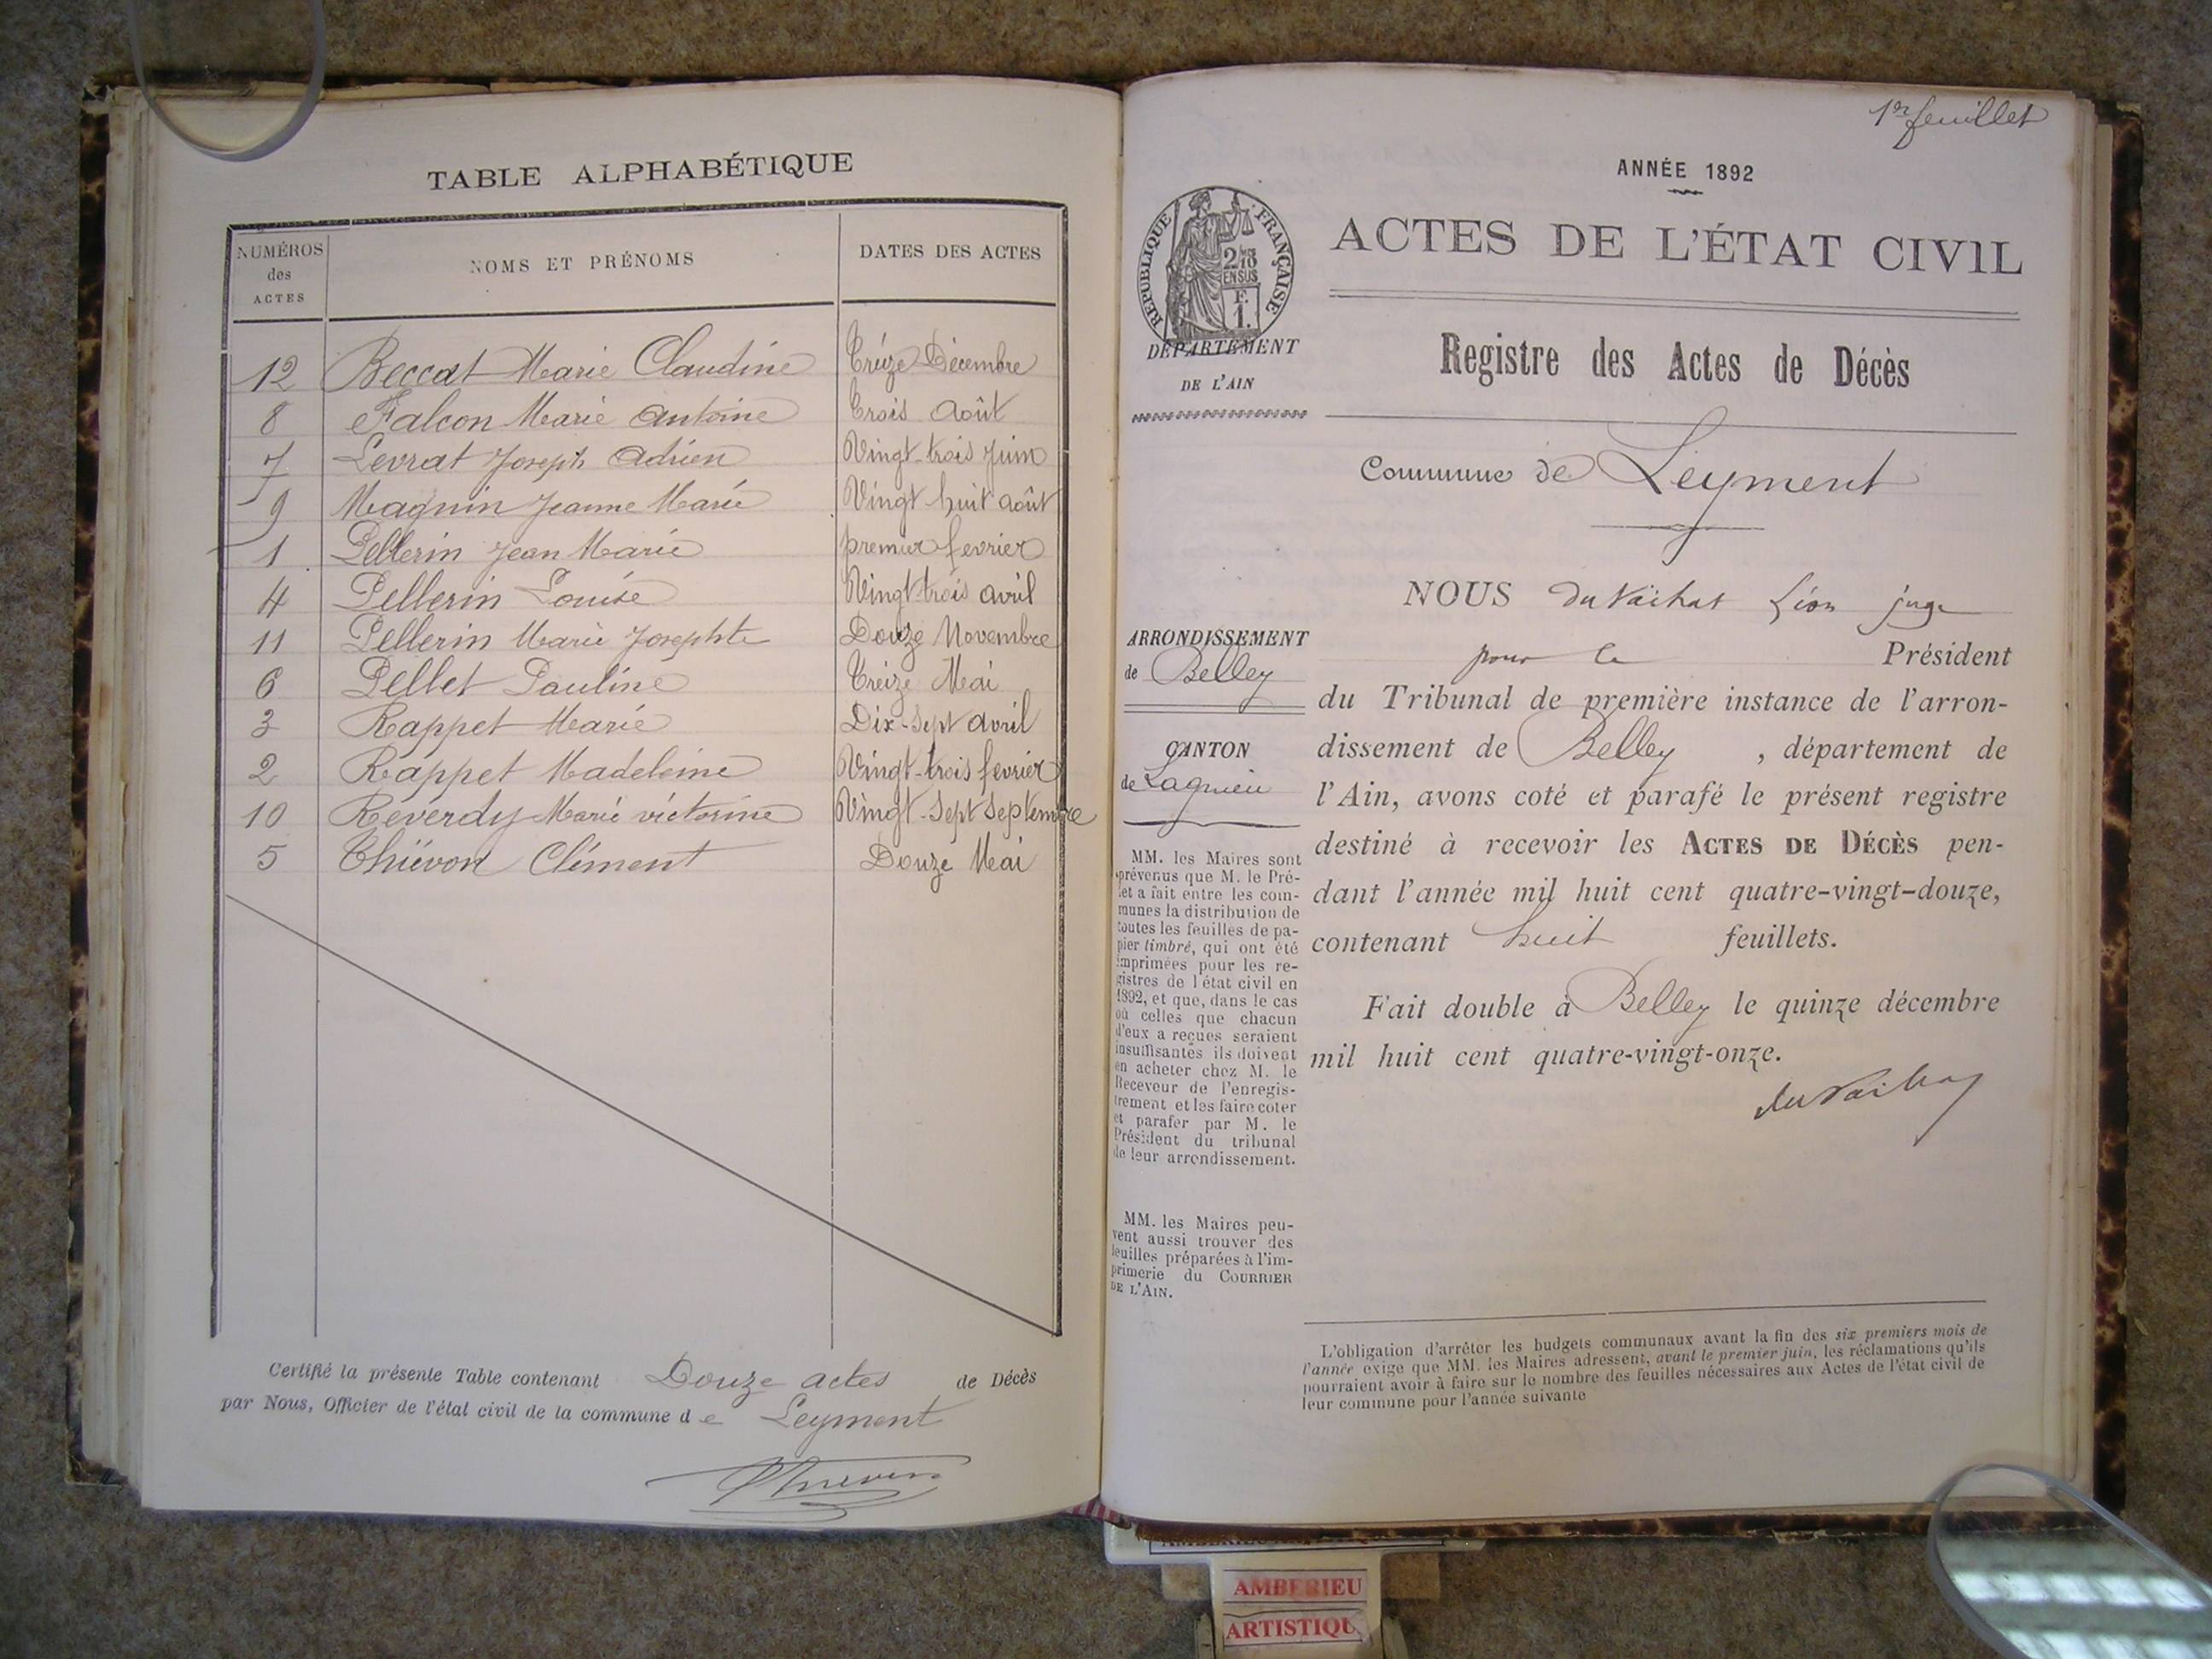 TABLE ALPHABÉTIQUE
NUMÉROS
des
ACTES
NOMS ET PRÉNOMS
DATES DES ACTES
12 Beccat Marie Claudine Treize Décembre
8 Falcon Marie Antoine Trois Août
7 Levrat Joseph Adrien Vingt-trois Juin
9 Magnin Jeanne Marie Vingt huit août
1 Pellerin Jean Marie premier fevrier
4 Pellerin Louise Vingt-trois avril
11 Pellerin Marie Josephte Douze Novembre
6 Pellet Pauline Treize Mai
3 Rappet Marie Dix-Sept avril
2 Rappet Madeleine Vingt-trois fevrier
10 Reverdy Marie victorine Vingt-Sept Septembre
5 Thiévon Clément Douze Mai
Certifié la présente Table contenant Douze actes de Décès
par Nous, Officier de l'état civil de la commune de Leyment
1er feuillet
ANNÉE 1892
RÉPUBLIQUE FRANÇAISE
2/10
EN SUS
F.
1.
ACTES DE L'ÉTAT CIVIL
DÉPARTEMENT
DE L'AIN
Registre des Actes de Décès
Commune de Leyment
NOUS du Vachat Léon juge
pour le Président
du Tribunal de première instance de l'arron-
dissement de Belley , département de
l'Ain, avons coté et parafé le présent registre
destiné à recevoir les ACTES DE DÉCÈS pen-
dant l'année mil huit cent quatre-vingt-douze,
contenant huit feuillets.
Fait double à Belley le quinze décembre
mil huit cent quatre-vingt-onze.
du Vachat
ARRONDISSEMENT
de Belley
CANTON
de Lagnieu
MM. les Maires sont
prévenus que M. le Pré-
fet a fait entre les com-
munes la distribution de
toutes les feuilles de pa-
pier timbré, qui ont été
imprimées pour les re-
gistres de l'état civil en
1892, et que, dans le cas
où celles que chacun
d'eux a reçues seraient
insuffisantes ils doivent
en acheter chez M. le
Receveur de l'enregis-
trement et les faire coter
et parafer par M. le
Président du tribunal
de leur arrondissement.
MM. les Maires peu-
vent aussi trouver des
feuilles préparées à l'im-
primerie du COURRIER
DE L'AIN.
L'obligation d'arrêter les budgets communaux avant la fin des six premiers mois de
l'année exige que MM. les Maires adressent, avant le premier juin, les réclamations qu'ils
pourraient avoir à faire sur le nombre des feuilles nécessaires aux Actes de l'état civil de
leur commune pour l'année suivante
AMBERIEU
ARTISTIQU